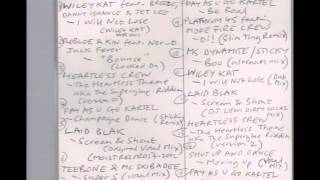 WILEY KAT feat. BREEZE,
DANNY ORANGE & JET LEE
- I Will Not Lose
(WILEY KAT)
ROBLOE & KIN feat. Nerut
Jack Fever
- "Bounce
(Locked On)
HEARTLESS CREW
- The Heartless Theme
aka The Superglue Riddim
(version 1)
PAY AS U GO KARTEL
- Champagne Dance (Sticky
Remix)
LAID BLAK
- Scream & Shout
(original Vocal Mix)
(MOIST RECORDS 2002)
TEEBONE & MC SKIBADEE
- Super S (Vocal Mix)
PAY AS U GO KARTEL
- Be Real
PLATINUM 45 feat.
MORE FIRE CREW
- Oi! (Slim Ting Remix)
MS DYNAMITE / STICKY
- Boo (alternate mix)
WILEY KAT
- I Will Not Lose (Dub
Mix)
LAID BLAK
- Scream & Shout
HEARTLESS CREW
- The Heartless Theme
aka The Superglue Riddim
(version 2)
SHUT UP AND DANCE
- Moving Up (Vocal
Mix)
PAY AS U GO KARTEL